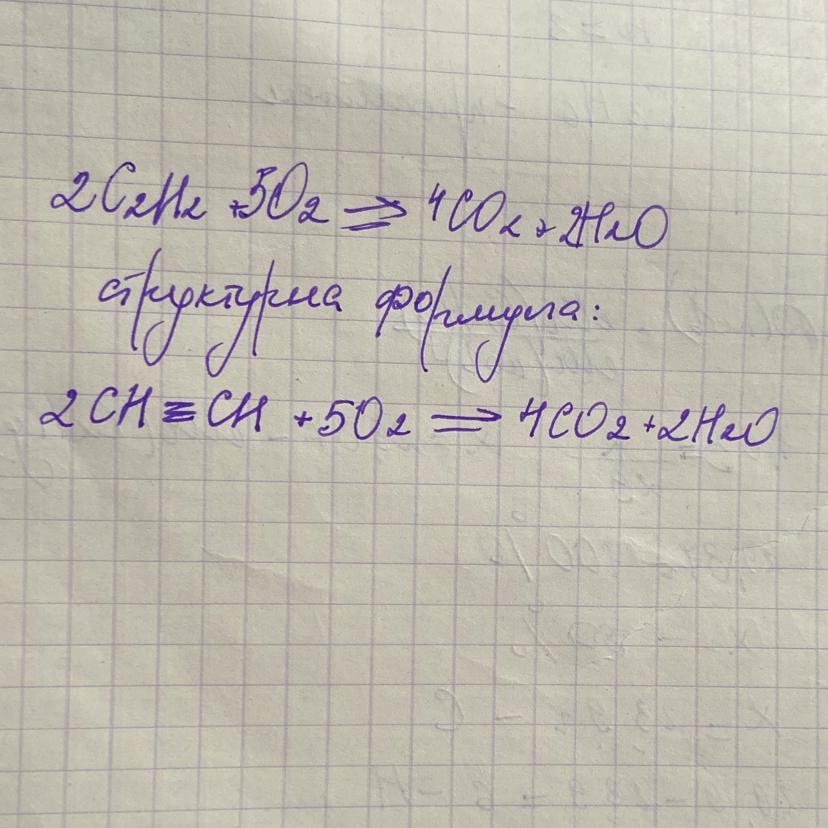 2C₂H₂ + 5O₂ ⇒ 4CO₂ + 2H₂O
структурна формула:
2CH≡CH + 5O₂ ⇒ 4CO₂ + 2H₂O